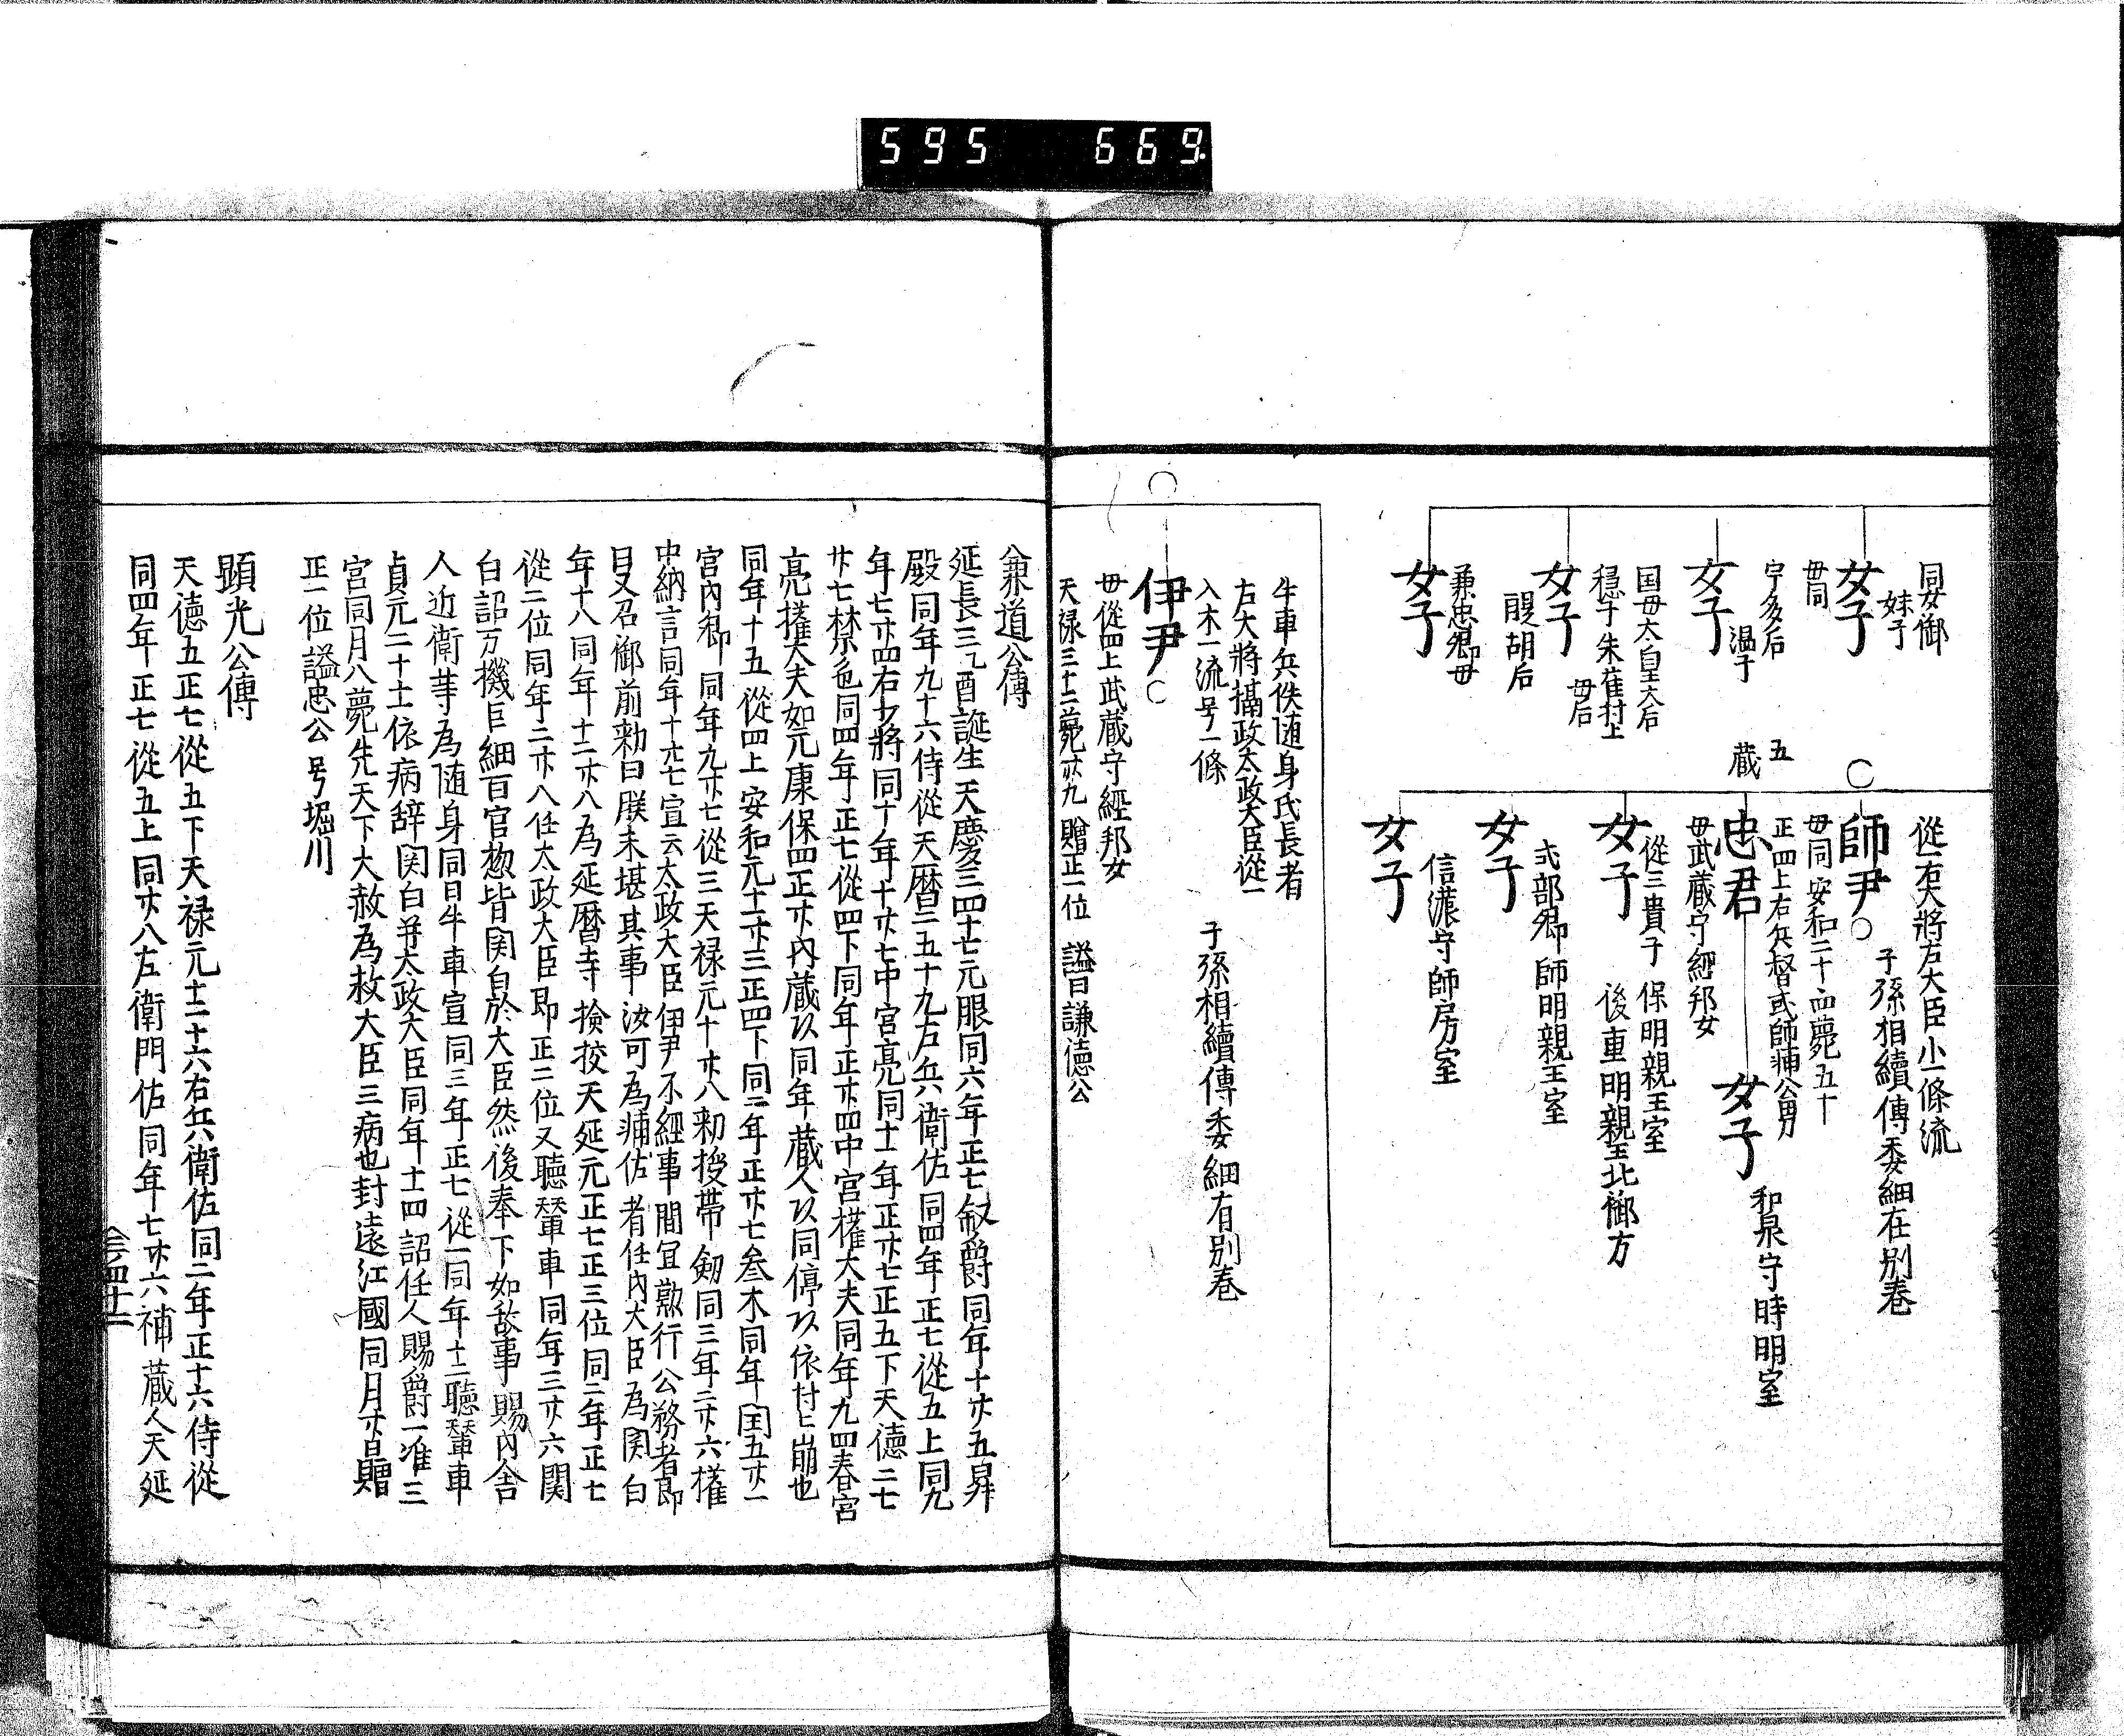 595 669.
同女御
妹子
女子
毋同
宇多后
温子
女子
国毋太皇大后
穏子朱雀村上
毋后
女子
醍胡后
兼忠卿毋
女子
五
蔵
從一右大將左大臣小一條流
師尹
子孫相續傳委細在別巻
毋同安和二十四薨五十
正四上右兵督或師輔公男
忠君
毋武蔵守經邦女
女子
和泉守時明室
從三貴子 保明親王室
後重明親王北御方
女子
式部卿師明親王室
女子
信濃守師房室
女子
牛車兵佚随身氏長者
右大將攝政太政大臣從一
入木一流号一條
子孫相續傳委細有別巻
伊尹
毋從四上武蔵守經邦女
天禄三十一二薨卌九 贈正一位 謚曰謙徳公
兼道公傳
延長三乙酉誕生天慶三四十七元服同六年正七叙爵同年十廿五昇
殿同年九十六侍從天暦二五十九左兵衛佐同四年正七從五上同九
年七廿四右少將同十年十廿七中宮亮同十一年正廿七正五下天德二七
廿七禁色同四年正七從四下同年正廿四中宮権大夫同年九四春宮
亮権大夫如元康保四正廿内蔵以同年蔵人以同停以依村上崩也
同年十五從四上安和元十一廿三正四下同二年正廿七叅木同年閏五廿一
宮内卿同年九廿七從三天禄元十廿八勅授帯劔同三年二廿六権
中納言同年十廿七宣云太政大臣伊尹不經事間冝勲行公務者即
日又召御前勅曰朕未堪其事汝可為輔佐者任内大臣為関白
年十八同年十二廿八為延暦寺撿挍天延元正七正三位同二年正七
從二位同年二廿八任太政大臣即正二位又聴輦車同年三廿六関
白詔万機巨細百官惣皆関白於大臣然後奉下如故事賜内舎
人近衛䓁為随身同日牛車宣同三年正七從一同年十二聴輦車
貞元二十十一依病辞関白并太政大臣同年十一四詔任人賜爵一准三
宮同月八薨先天下大赦為救大臣三病也封遠江國同月廿日贈
正一位謚忠公 号堀川
顕光公傳
天德五正七從五下天禄元十二十六右兵衛佐同二年正十六侍從
同四年正七從五上同廿八左衛門佐同年七廿六補蔵人天延